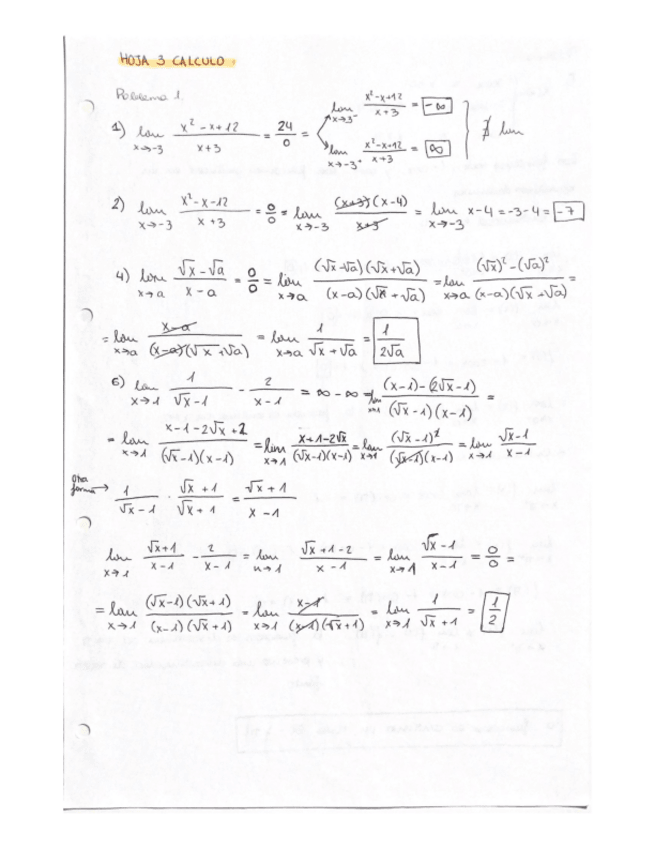 HOJA 3 CALCULO.
Problema 1.
1) lim x→-3 (x² - x + 12)/(x+3) = 24/0 = lim x→-3⁻ (x²-x+12)/(x+3) = -∞
lim x→-3⁺ (x²-x+12)/(x+3) = ∞ } ∄ lim
2) lim x→-3 (x²-x-12)/(x+3) = 0/0 = lim x→-3 (x+3)(x-4)/(x+3) = lim x→-3 x-4 = -3-4 = -7
4) lim x→a (√x - √a)/(x - a) = 0/0 = lim x→a (√x-√a)(√x+√a)/((x-a)(√x+√a)) = lim x→a ((√x)² - (√a)²)/((x-a)(√x+√a)) =
= lim x→a (x-a)/((x-a)(√x+√a)) = lim x→a 1/(√x+√a) = 1/(2√a)
6) lim x→1 1/(√x-1) - 2/(x-1) = ∞ - ∞ = lim x→1 ((x-1)-(2√x-1))/((√x-1)(x-1)) =
= lim x→1 (x-1-2√x+2)/((√x-1)(x-1)) = lim x→1 (x+1-2√x)/((√x-1)(x-1)) = lim x→1 (√x-1)²/((√x-1)(x-1)) = lim x→1 (√x-1)/(x-1)
Otra forma → 1/(√x-1) · (√x+1)/(√x+1) = (√x+1)/(x-1)
lim x→1 (√x+1)/(x-1) - 2/(x-1) = lim x→1 (√x+1-2)/(x-1) = lim x→1 (√x-1)/(x-1) = 0/0 =
= lim x→1 (√x-1)(√x+1)/((x-1)(√x+1)) = lim x→1 (x-1)/((x-1)(√x+1)) = lim x→1 1/(√x+1) = 1/2